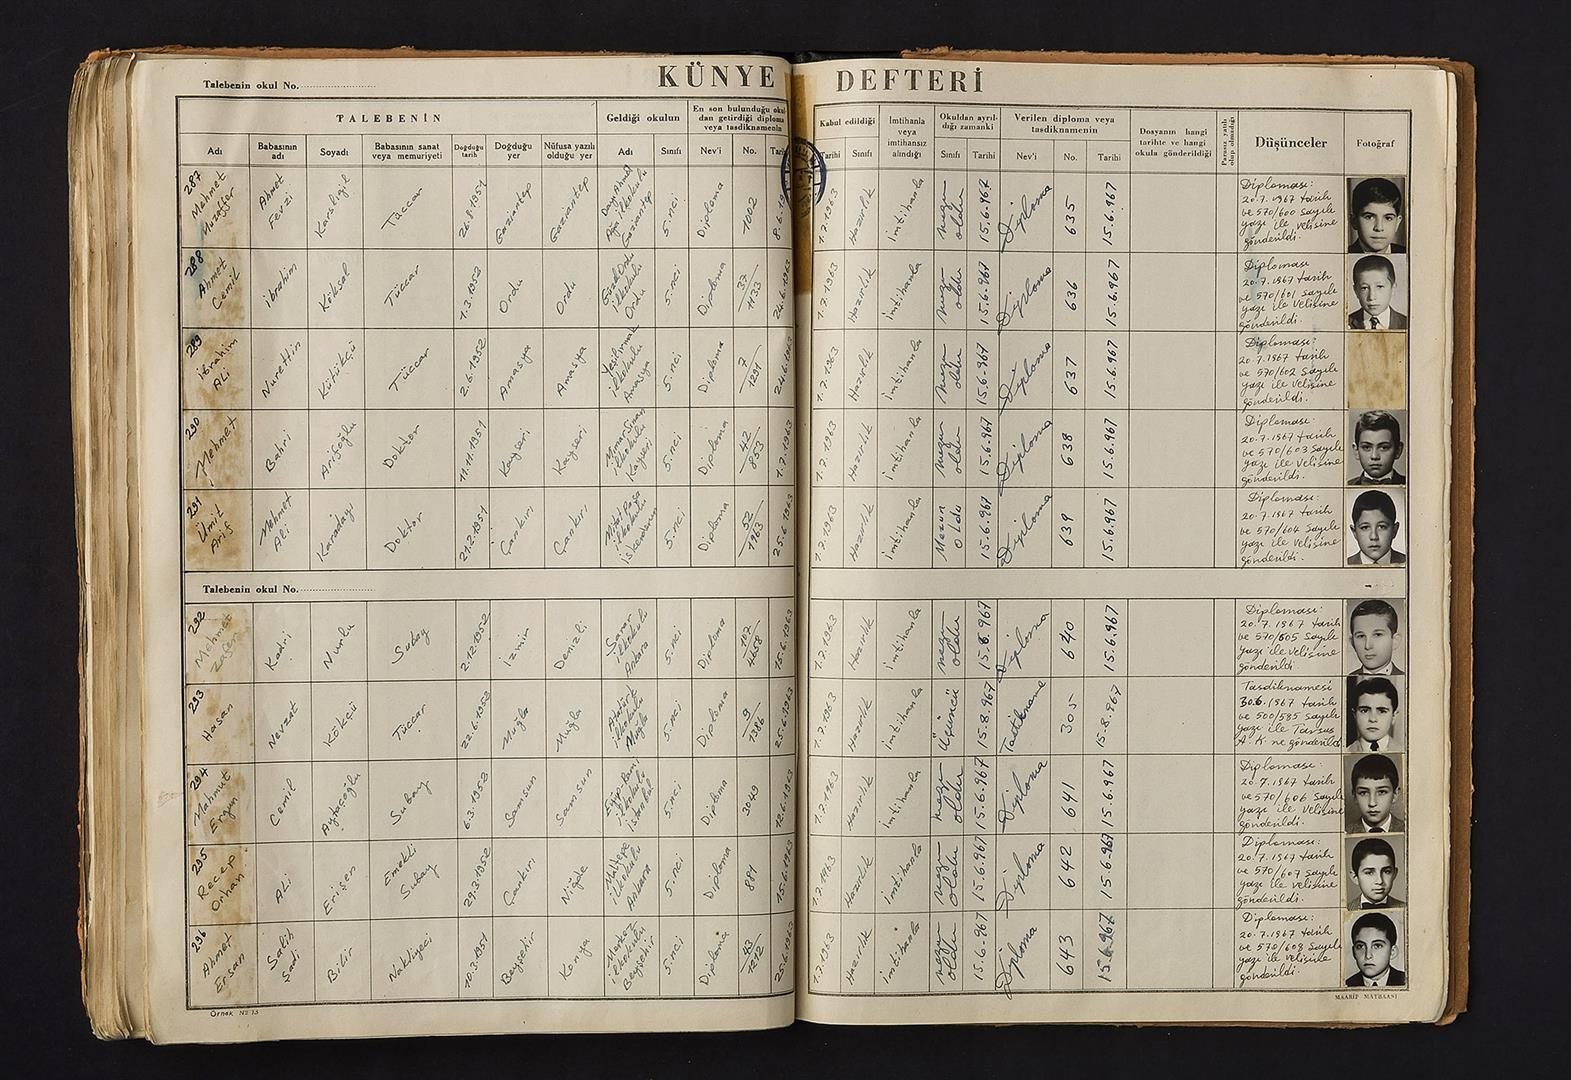 KÜNYE DEFTERİ
Talebenin okul No.
TALEBENİN
Geldiği okulun
En son bulunduğu okul
dan getirdiği diploma
veya tasdiknamenin
Kabul edildiği
İmtihanla
veya
imtihansız
alındığı
Okuldan ayrıl-
dığı zamanki
Verilen diploma veya
tasdiknamenin
Dosyanın hangi
tarihte ve hangi
okula gönderildiği
Parasız yatılı
olup olmadığı
Düşünceler
Fotoğraf
Adı
Babasının
adı
Soyadı
Babasının sanat
veya memuriyeti
Doğduğu
tarih
Doğduğu
yer
Nüfusa yazılı
olduğu yer
Adı
Sınıfı
Nev'i
No.
Tarihi
Tarihi
Sınıfı
Sınıfı
Tarihi
Nev'i
No.
Tarihi
287
Mehmet
Muzaffer
Ahmet
Fevzi
Karslıgil
Tüccar
26.8.1951
Gaziantep
Gaziantep
İlkokulu
Gaziantep
5.nci
Diploma
1002
1.7.1963
Hazırlık
İmtihanla
mezun
oldu
15.6.967
Diploma
635
15.6.967
Diploması:
20.7.1967 tarih
ve 570/600 Sayılı
yazı ile Velisine
gönderildi.
288
Ahmet
Cemil
İbrahim
Köksal
Tüccar
1.3.1952
Ordu
Ordu
İlkokulu
Ordu
5.nci
Diploma
37
1133
24.6.1963
1.7.1963
Hazırlık
İmtihanla
mezun
oldu
15.6.967
Diploma
636
15.6.967
Diploması
20.7.1967 tarih
ve 570/601 Sayılı
yazı ile Velisine
gönderildi.
289
İbrahim
Ali
Nurettin
Kütükçü
Tüccar
2.6.1952
Amasya
Amasya
Yeşilırmak
İlkokulu
Amasya
5.nci
Diploma
7
1291
24.6.1963
1.7.1963
Hazırlık
İmtihanla
mezun
oldu
15.6.967
Diploma
637
15.6.967
Diploması:
20.7.1967 tarih
ve 570/602 Sayılı
yazı ile Velisine
gönderildi.
290
Mehmet
Bahri
Arifoğlu
Doktor
11.11.1951
Kayseri
Kayseri
Mimar Sinan
İlkokulu
Kayseri
5.nci
Diploma
42
853
1.7.1963
1.7.1963
Hazırlık
İmtihanla
mezun
oldu
15.6.967
Diploma
638
15.6.967
Diploması:
20.7.1967 tarih
ve 570/603 Sayılı
yazı ile Velisine
gönderildi.
291
Ümit
Arif
Mehmet
Ali
Karadayı
Doktor
21.2.1951
Çankırı
Çankırı
İlkokulu
İskenderun
5.nci
Diploma
52
1963
25.6.1963
1.7.1963
Hazırlık
İmtihanla
Mezun
oldu
15.6.967
Diploma
639
15.6.967
Diploması:
20.7.1967 tarih
ve 570/604 Sayılı
yazı ile Velisine
gönderildi.
Talebenin okul No.
292
Mehmet
Zafer
Kadri
Nurlu
Subay
2.12.1952
İzmir
Denizli
Sarar
İlkokulu
Ankara
5.nci
Diploma
107
4658
15.6.1963
1.7.1963
Hazırlık
İmtihanla
mezun
oldu
15.6.967
Diploma
640
15.6.967
Diploması:
20.7.1967 tarih
ve 570/605 Sayılı
yazı ile Velisine
gönderildi
293
Hasan
Nevzat
Kökçü
Tüccar
22.6.1952
Muğla
Muğla
Atatürk
İlkokulu
Muğla
5.nci
Diploma
9
1386
25.6.1963
1.7.1963
Hazırlık
İmtihanla
Üçüncü
15.8.967
Tastikname
305
15.8.967
Tasdiknamesi
30.6.1967 tarih
ve 500/585 Sayılı
yazı ile Tarsus
A.K ne gönderildi
294
Mahmut
Ergun
Cemil
Aytaçoğlu
Subay
6.3.1952
Samsun
Samsun
İlkokulu
İstanbul
5.nci
Diploma
3049
12.6.1963
1.7.1963
Hazırlık
İmtihanla
mezun
oldu
15.6.967
Diploma
641
15.6.967
Diploması:
20.7.1967 tarih
ve 570/606 Sayılı
yazı ile Velisine
gönderildi.
295
Recep
Orhan
Ali
Erişen
Emekli
Subay
29.3.1952
Çankırı
Niğde
Maltepe
İlkokulu
Ankara
5.nci
Diploma
881
15.6.1963
1.7.1963
Hazırlık
İmtihanla
mezun
oldu
15.6.967
Diploma
642
15.6.967
Diploması:
20.7.1967 tarih
ve 570/607 Sayılı
yazı ile Velisine
gönderildi.
296
Ahmet
Ersan
Salih
Sadi
Bilir
Nakliyeci
10.3.1951
Beyşehir
Konya
Merkez
İlkokulu
Beyşehir
5.nci
Diploma
43
1212
25.6.1963
1.7.1963
Hazırlık
İmtihanla
mezun
oldu
15.6.967
Diploma
643
15.6.967
Diploması:
20.7.1967 tarih
ve 570/608 Sayılı
yazı ile Velisine
gönderildi.
Örnek Nº 13
MAARİF MATBAASI